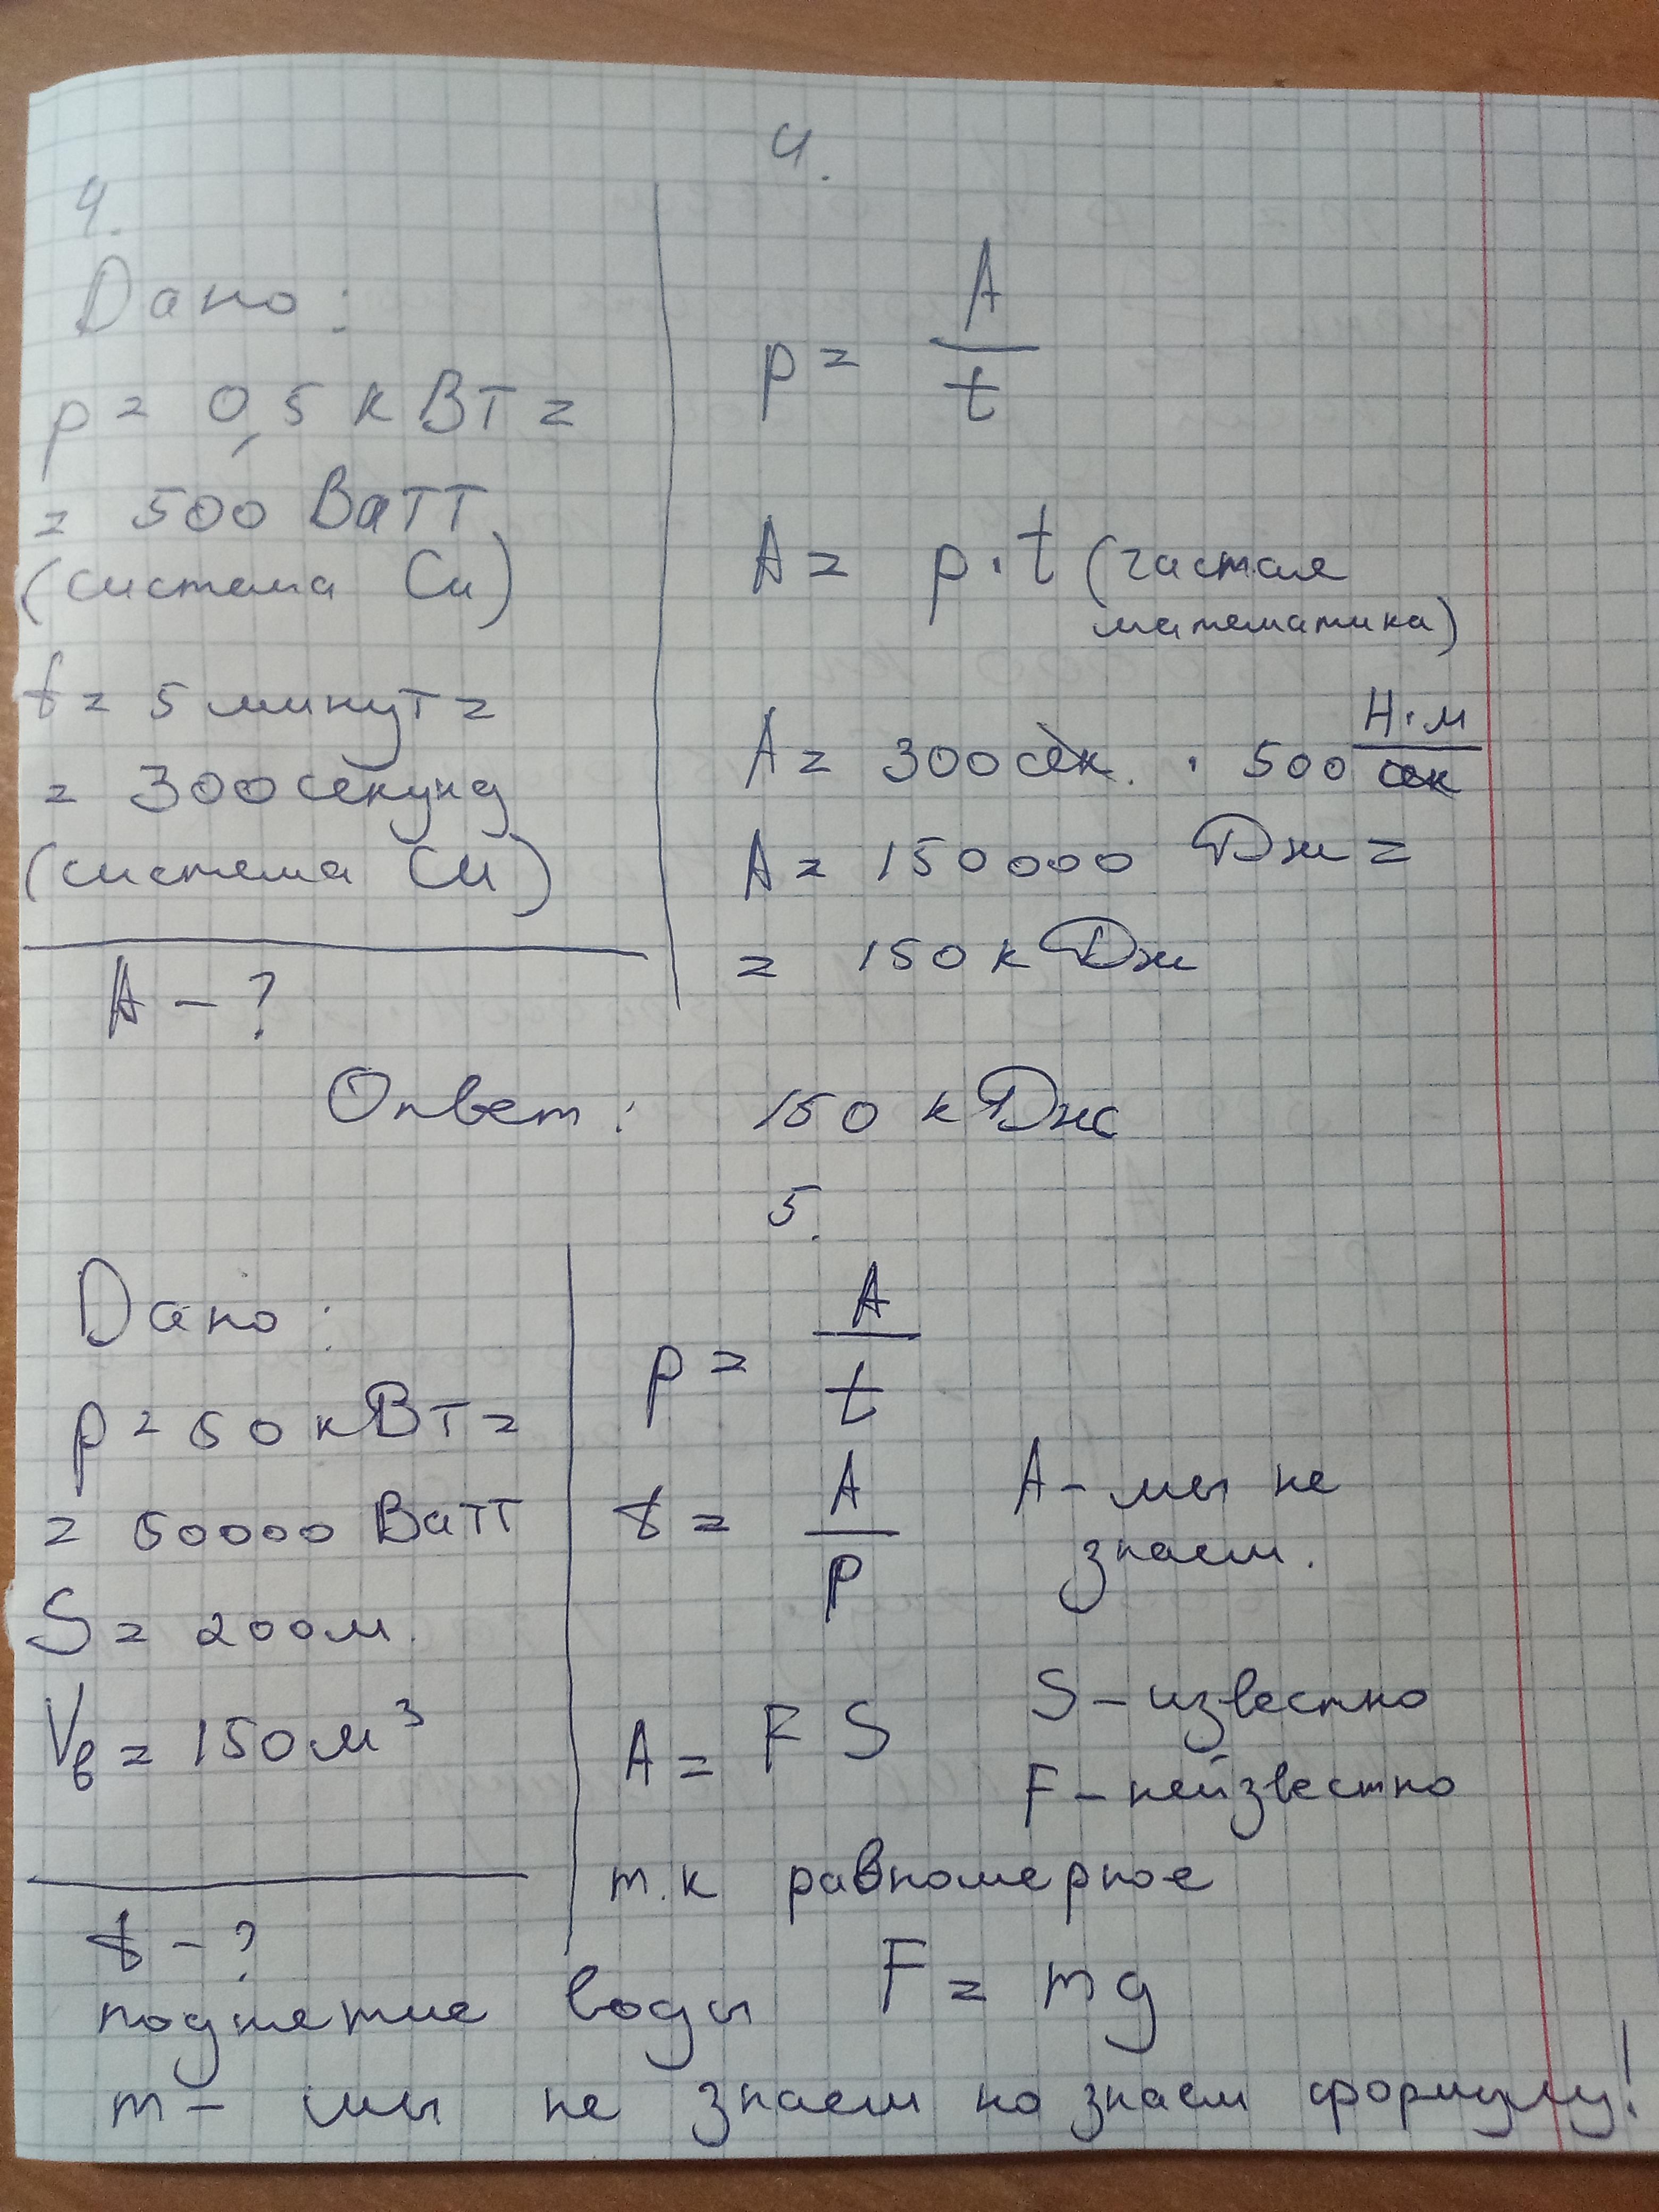 4.
4.
Дано:
p = 0,5 кВт =
= 500 Ватт
(система Си)
t = 5 минут =
= 300 секунд
(система Си)
A - ?
p = A/t
A = p · t (частая
математика)
A = 300 сек. · 500 Н·м/сек
A = 150000 Дж =
= 150 кДж
Ответ: 150 кДж
5.
Дано:
p = 50 кВт =
= 50000 Ватт
S = 200 м.
Vв = 150 м³
t - ?
p = A/t
t = A/p A - мы не
знаем.
A = F S S - известно
F - неизвестно
т.к равномерное
поднятие воды F = mg
m - мы не знаем но знаем формулу!